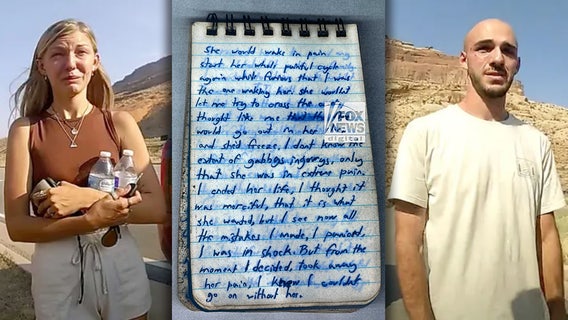 She would wake in pain
start her whole painful
again while furious that I was
the one waking her. She wouldn't
let me try to cross the
thought like me
would go out in her
and she'd freeze. I don't know the
extent of gabbys injurys, only
that she was in extreme pain.
I ended her life, I thought it
was merciful, that it is what
she wanted, but I see now all
the mistakes I made. I panicked,
I was in shock. But from the
moment I decided, took away
her pain, I knew I couldn't
go on without her.
FOX
NEWS
digital